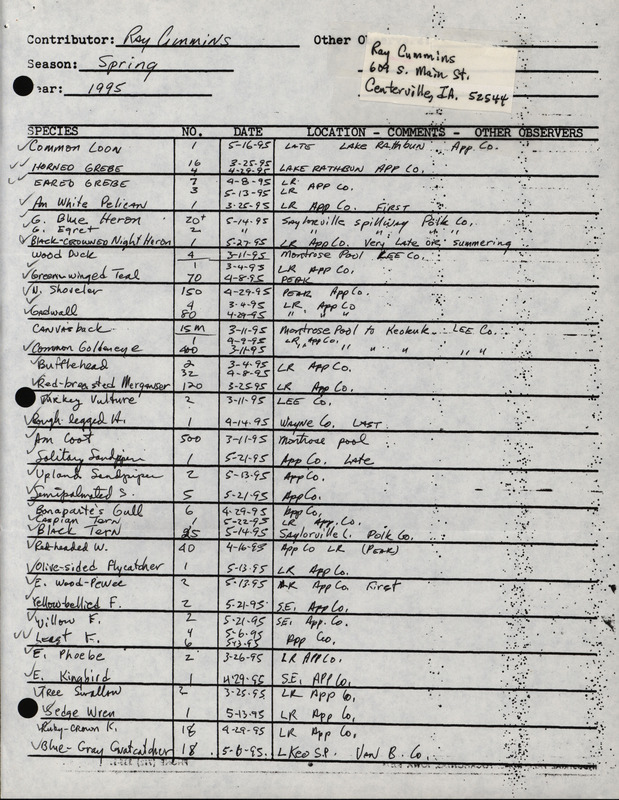 Contributor: Ray Cummins Other O
Ray Cummins
609 S. Main St.
Centerville, IA. 52544
Season: Spring
ear: 1995
SPECIES NO. DATE LOCATION - COMMENTS - OTHER OBSERVERS
✓Common Loon 1 5-16-95 LATE Lake Rathbun App Co.
✓✓Horned Grebe 16 3-25-95 Lake Rathbun App Co.
4 4-29-95
✓✓Eared Grebe 7 4-8-95 LR App Co.
3 5-13-95 LR
✓Am White Pelican 1 3-25-95 LR App Co. First
✓G. Blue Heron 20+ 5-14-95 Saylorville spillway Polk Co.
✓G. Egret 2 " " " "
✓Black-crowned Night Heron 1 5-27-95 LR App Co. Very Late or summering
Wood Duck 4 3-11-95 Montrose Pool LEE Co.
✓Green-winged Teal 3-4-95 LR App Co.
70 4-8-95 PEAK
✓N. Shoveler 150 4-29-95 PEAK App Co.
✓Gadwall 4 3-4-95 LR App Co
80 4-29-95 " " "
Canvasback 15m 3-11-95 Montrose Pool to Keokuk LEE Co.
✓Common Goldeneye 1 4-9-95 LR, App Co.
400 3-11-95 " " " "
✓Bufflehead 2 3-4-95 LR App Co.
32 4-8-95
✓Red-breasted Merganser 120 3-25-95 LR App Co.
Turkey Vulture 2 3-11-95 LEE Co.
✓Rough-legged H. 1 4-14-95 Wayne Co. LAST
✓Am Coot 500 3-11-95 Montrose pool
✓Solitary Sandpiper 1 5-21-95 App Co. Late
✓Upland Sandpiper 2 5-13-95 App Co.
✓Semipalmated S. 5 5-21-95 App Co.
Bonaparte's Gull 6 4-29-95 App Co.
✓Caspian Tern 1 5-22-95 LR App. Co.
✓Black Tern 25 5-14-95 Saylorville L. Polk Co.
✓Red-headed W. 40 4-16-95 App Co LR (PEAK)
✓Olive-sided Flycatcher 1 5-13-95 LR App Co.
✓E. Wood-Pewee 2 5-13-95 LR App Co. First
✓Yellow-bellied F. 2 5-21-95 S.E. App Co.
✓Willow F. 2 5-21-95 SE. App. Co.
✓✓Least F. 4 5-6-95 App Co.
6 5-13-95
✓E. Phoebe 2 3-26-95 LR App Co.
✓E. Kingbird 1 4-29-95 S.E. App Co.
✓Tree Swallow 2 3-25-95 LR App Co,
Sedge Wren 1 5-13-95 LR App Co,
✓Ruby-crown K. 18 4-29-95 LR App Co.
✓Blue-Gray Gnatcatcher 18 5-6-95. L Keo S.P. Van B. Co.